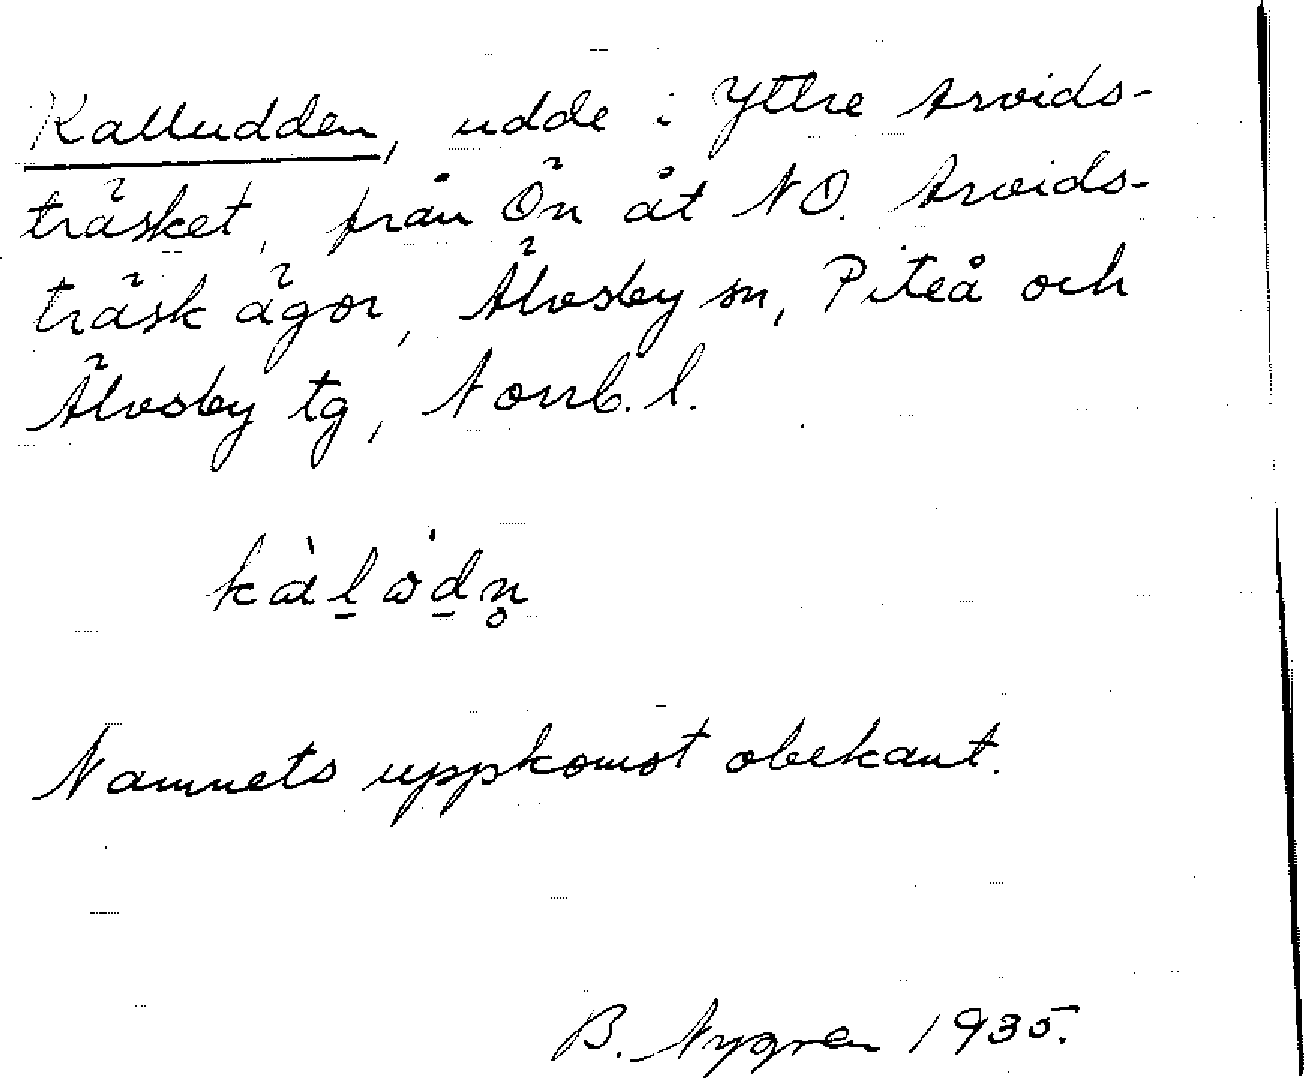 Kalludden, udde i Yttre Arvids-
träsket, från Ön åt NO. Arvids-
träsk ägor, Älvsby sn, Piteå och
Älvsby tg, Norrb. l.
kàl̠ òd̠n̥
Namnets uppkomst obekant.
B. Nygren 1935.